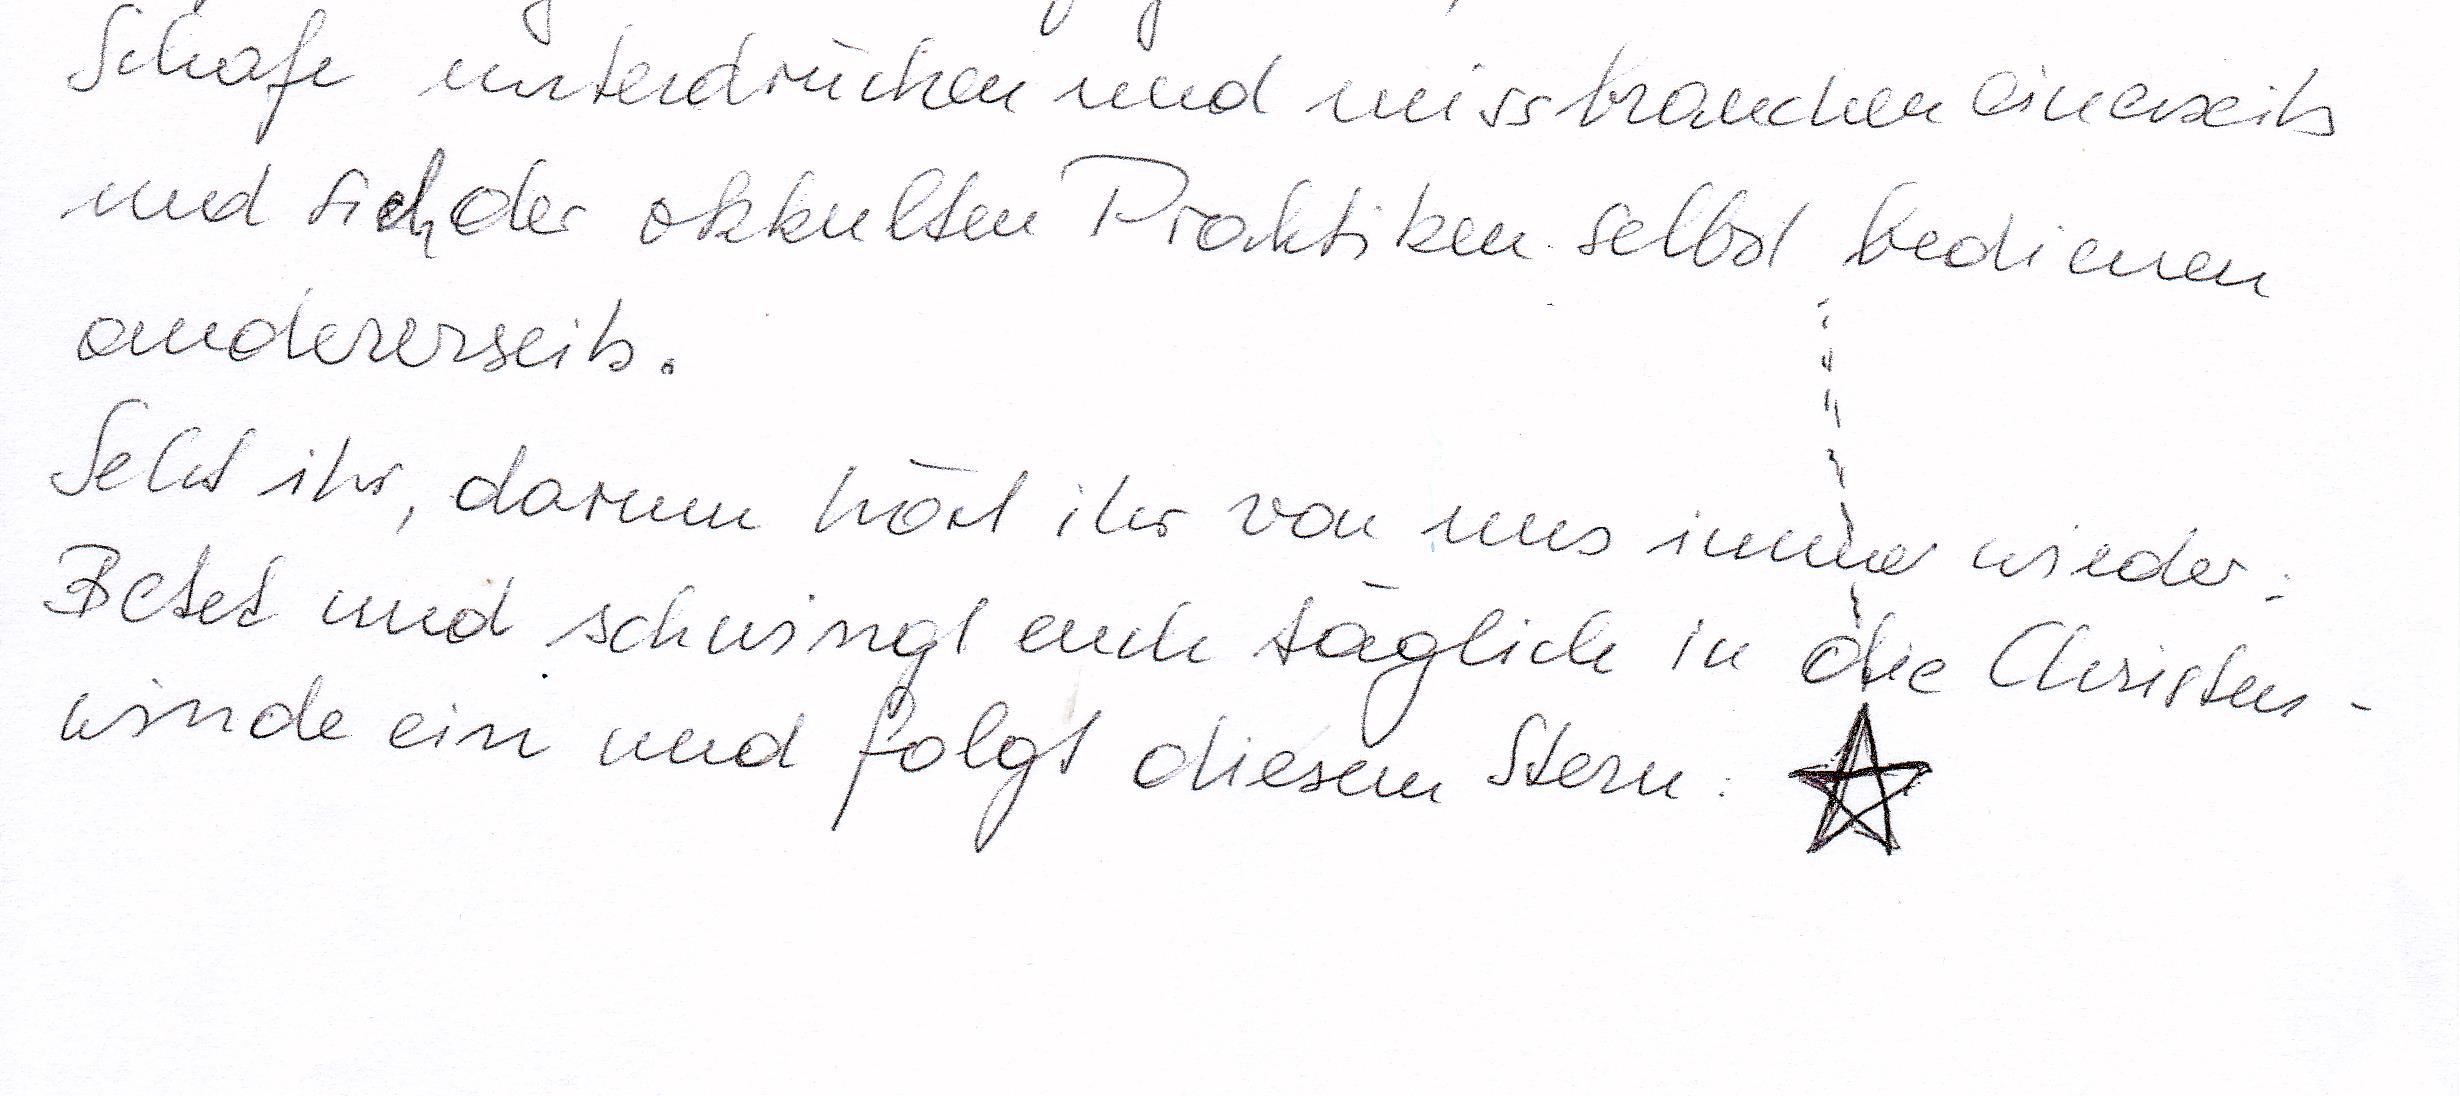 Schafe unterdrücken und missbrauchen einerseits
und sich der okkulten Praktiken selbst bedienen
andererseits.
Seht ihr, darum hört ihr von uns immer wieder:
Betet und schwingt euch täglich in die Christus-
winde ein und folgt diesem Stern: